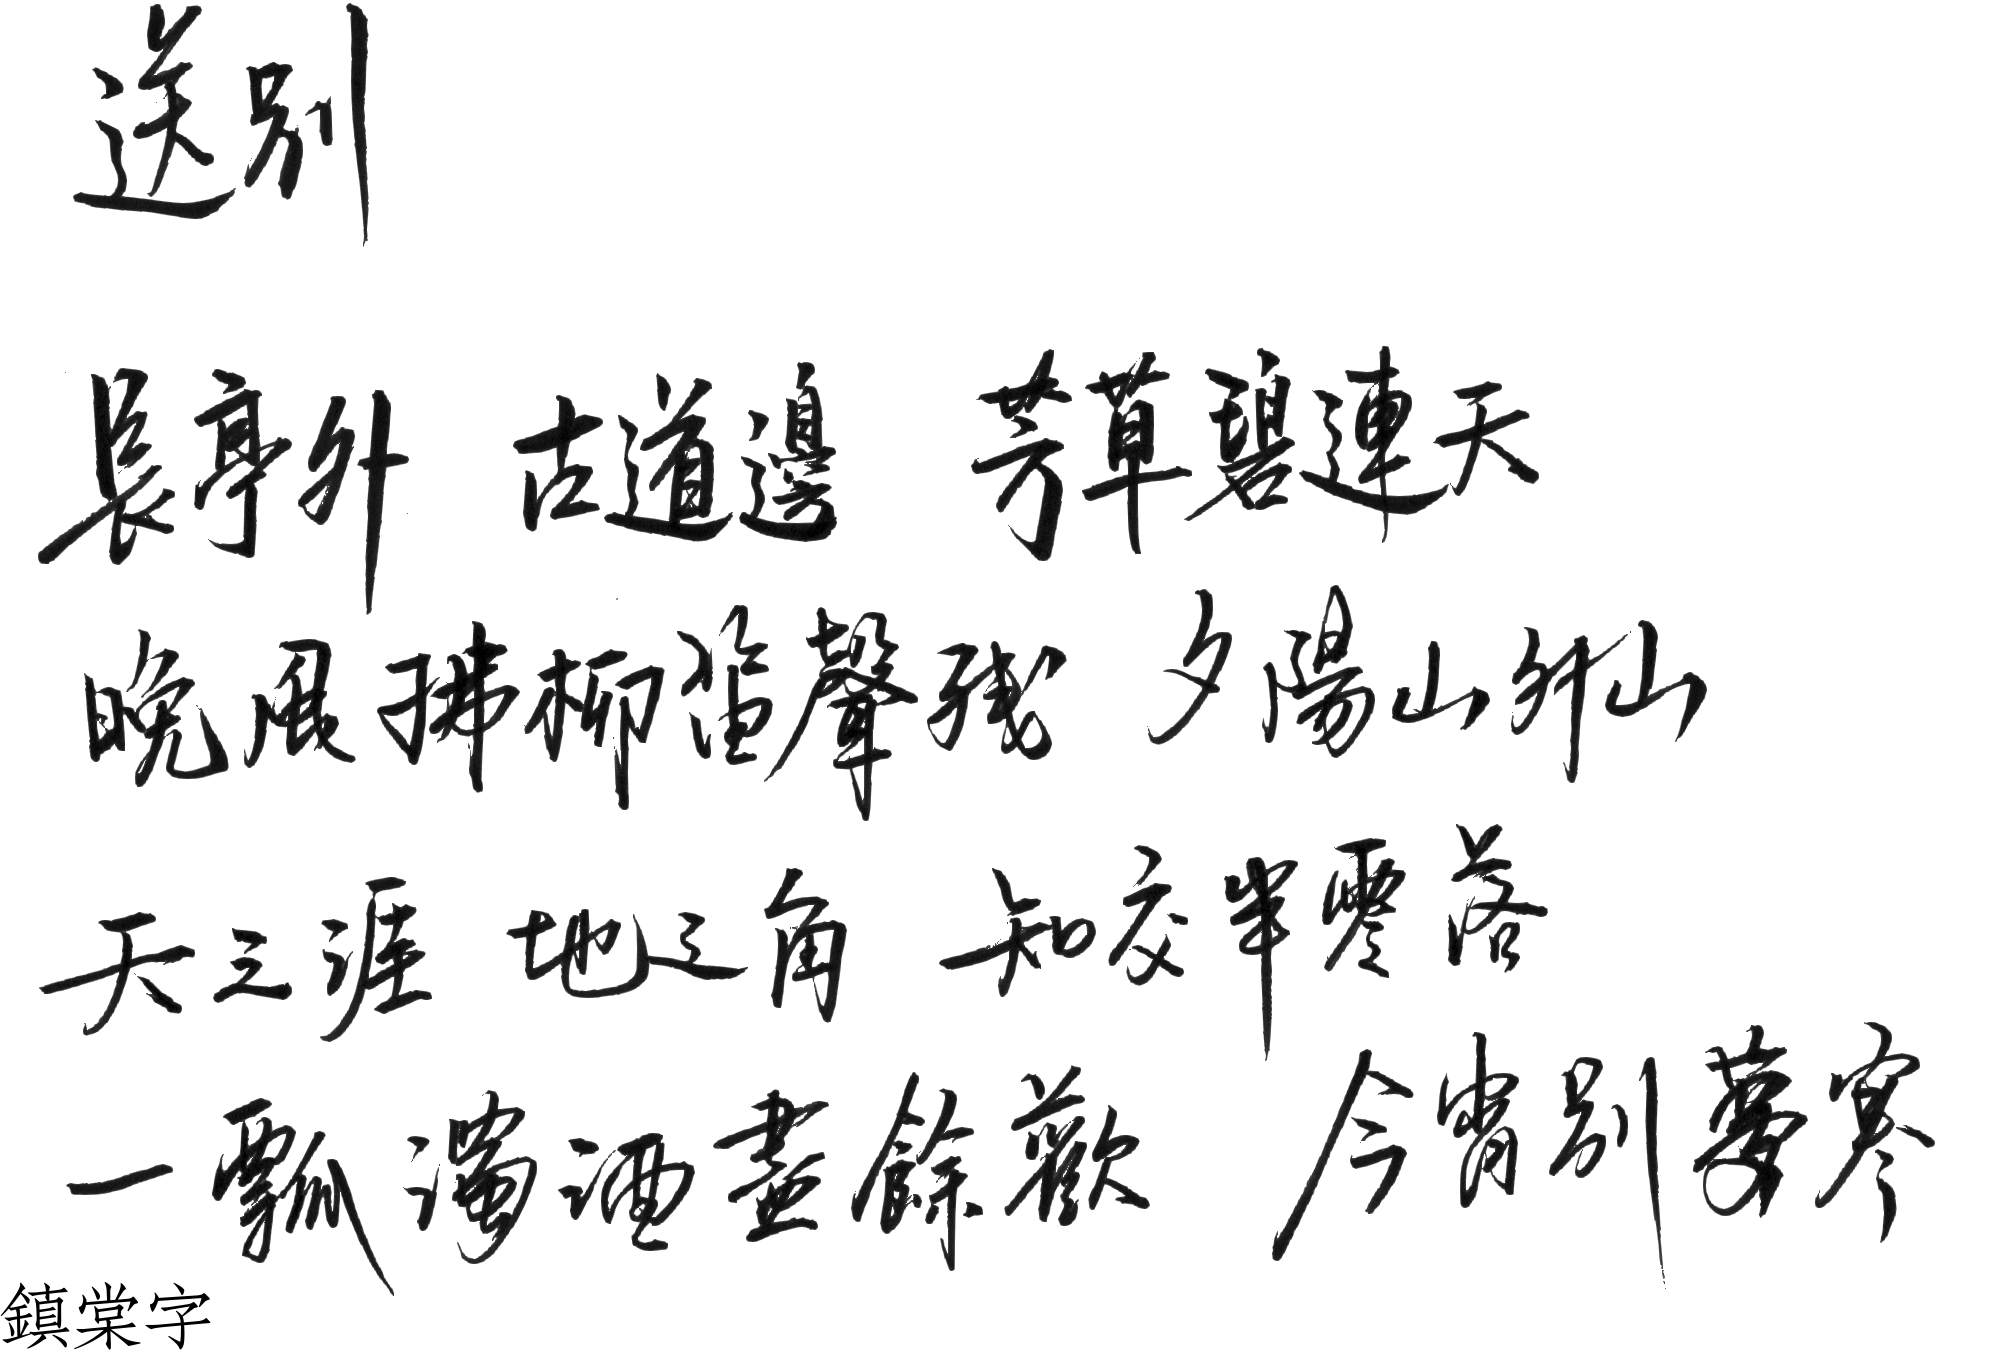 送別
長亭外 古道邊 芳草碧連天
晚風拂柳笛聲殘 夕陽山外山
天之涯 地之角 知交半零落
一瓢濁酒盡餘歡 今宵別夢寒
鎮棠字